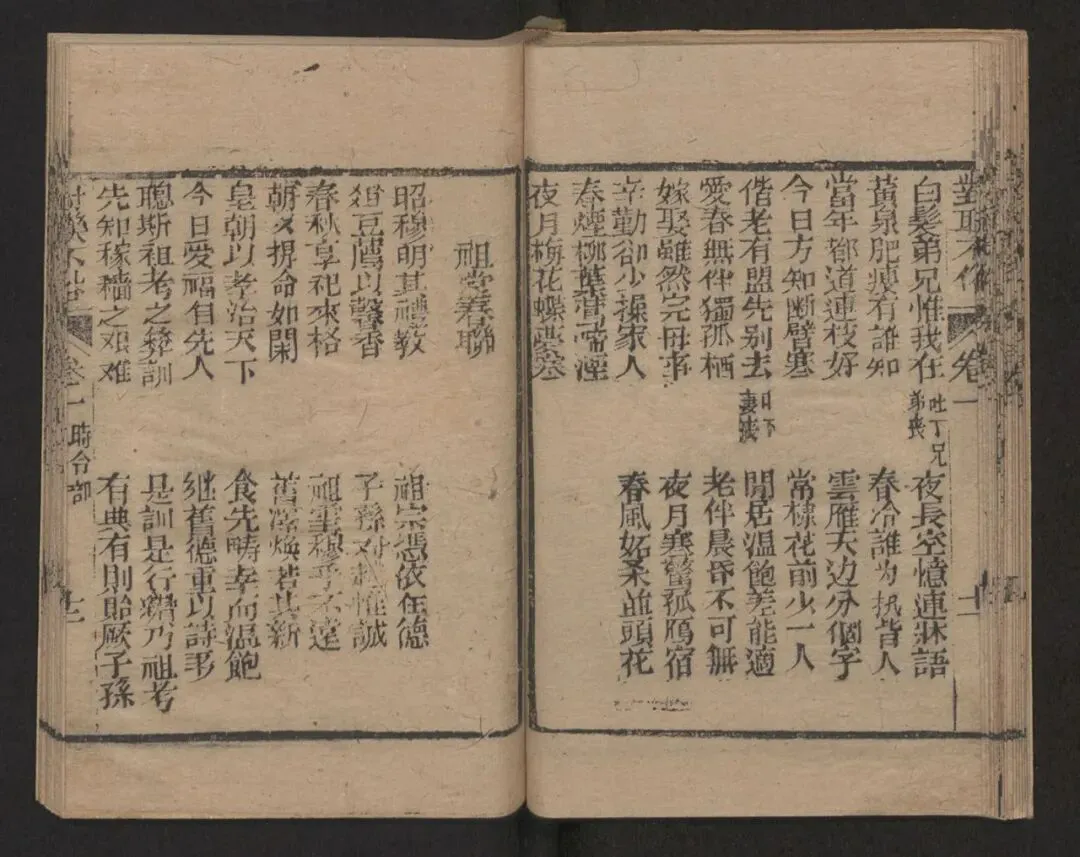 卷一
白髮弟兄惟我在 夜長空憶連牀語
黃泉肥瘦有誰知 春冷誰为执皆人
當年都道連枝好 雲雁天边分個字
今日方知断臂寒 常棣花前少一人
偕老有盟先别去 妻喪 閒居温飽差能適
愛春無伴獨孤栖 老伴晨昏不可無
嫁娶雖然完毋事 夜月寒驚孤鴈宿
辛勤卻少操家人 春風妬柔並頭花
春煙柳葉啼湮
夜月梅花蝶夢寒
祖堂春聯
昭穆明其禮教 祖宗憑依在德
俎豆薦以馨香 子孫对越惟誠
春秋享祀來格 祖霊穆乎不遠
朝夕提命如閑 舊澤煥若其新
皇朝以孝治天下 食先畴幸而温飽
今日爱福有先人 继舊德重以詩书
聰斯祖考之彝訓 是訓是行纘乃祖考
先知稼穡之艰难 有典有則貽厥子孫
卷一 時令部